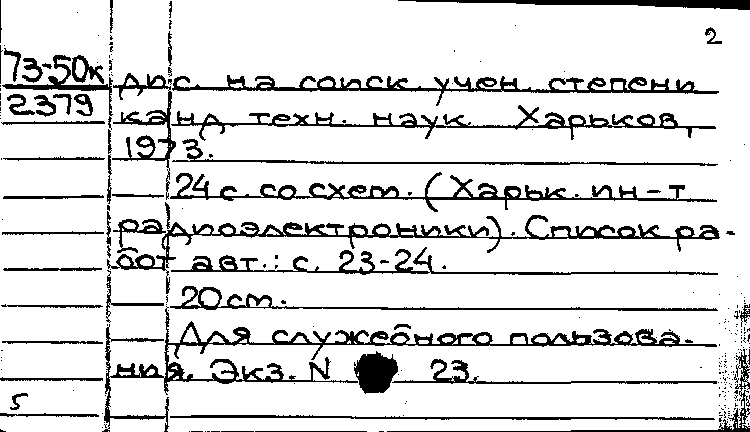 2
73-50к
2379
дис. на соиск. учен. степени
канд. техн. наук. Харьков,
1973.
24 с. со схем. (Харьк. ин-т
радиоэлектроники). Список ра-
бот авт.: с. 23-24.
20 см.
Для служебного пользова-
ния. Экз. N 23.
5